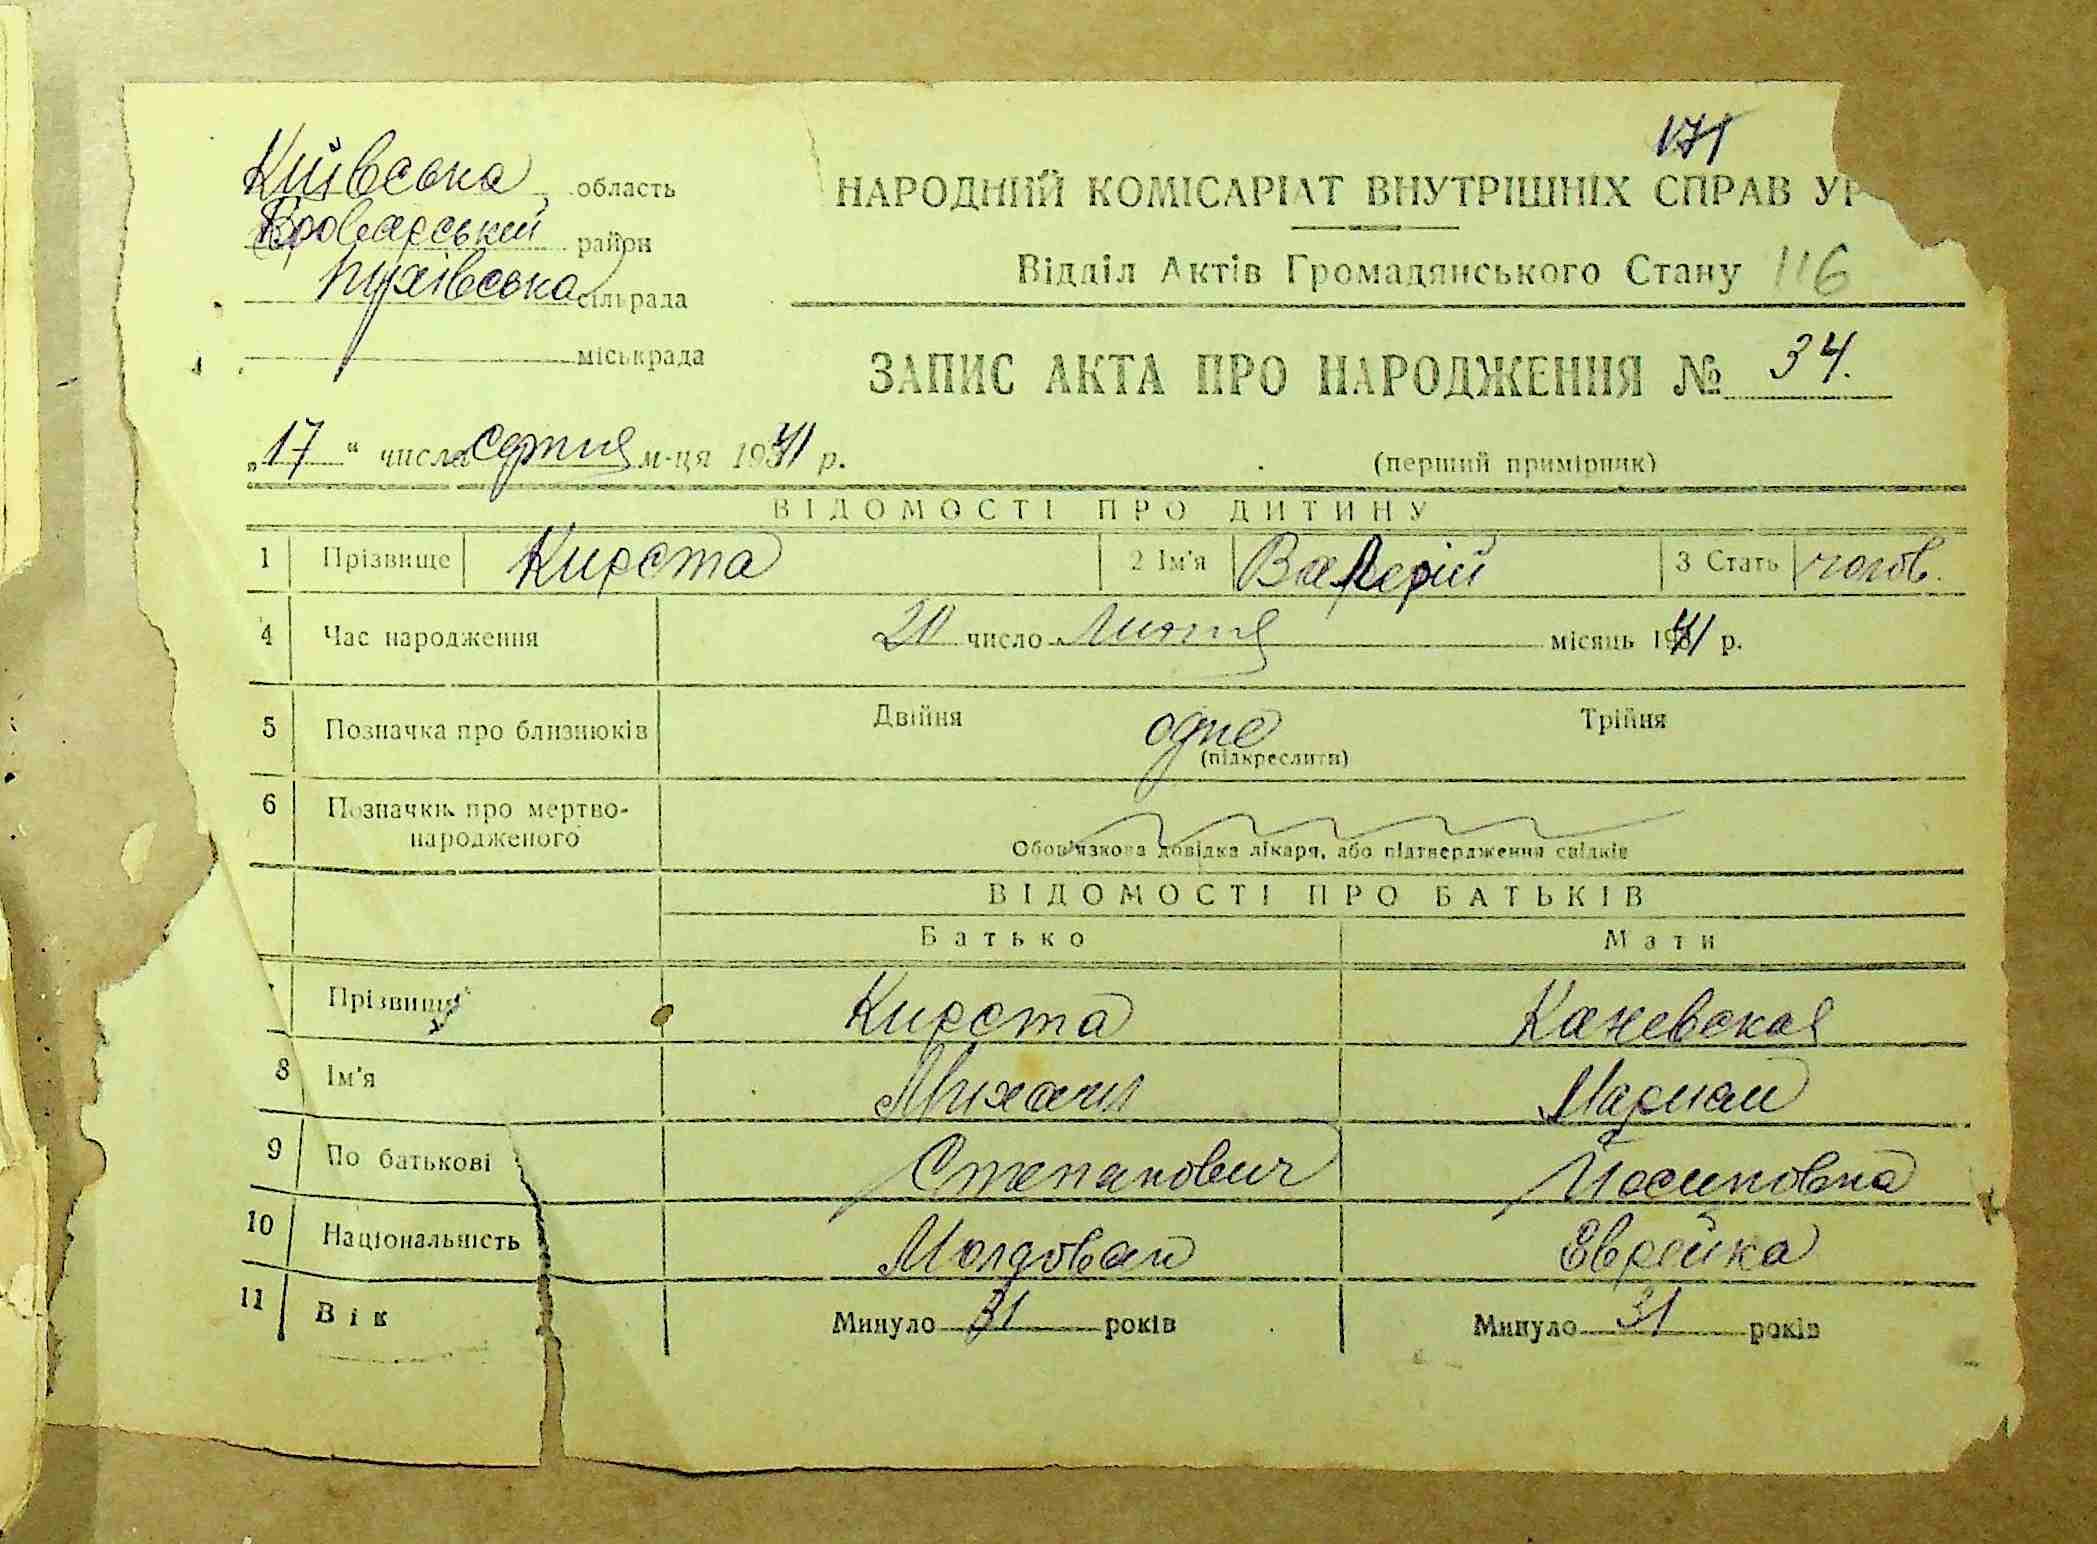 171
Київська область
НАРОДНИЙ КОМІСАРІАТ ВНУТРІШНІХ СПРАВ УР
Броварський район
Відділ Актів Громадянського Стану 116
Пухівська сільрада
міськрада
ЗАПИС АКТА ПРО НАРОДЖЕННЯ № 34.
„17“ числа серпня м-ця 1941 р.
(перший примірник)
ВІДОМОСТІ ПРО ДИТИНУ
1 Прізвище Кирста 2 Ім'я Валерій 3 Стать чолов.
4 Час народження 20 число Лютня місяць 1941 р.
5 Позначка про близнюків Двійня одне Трійня
(підкреслити)
6 Позначки про мертво-
народженого
Обов'язкова довідка лікаря, або підтвердження свідків
ВІДОМОСТІ ПРО БАТЬКІВ
Батько Мати
Прізвище Кирста Каневская
8 Ім'я Михаил Мариам
9 По батькові Степанович Йосиповна
10 Національність Молдован Еврейка
11 Вік Минуло 31 років Минуло 31 років